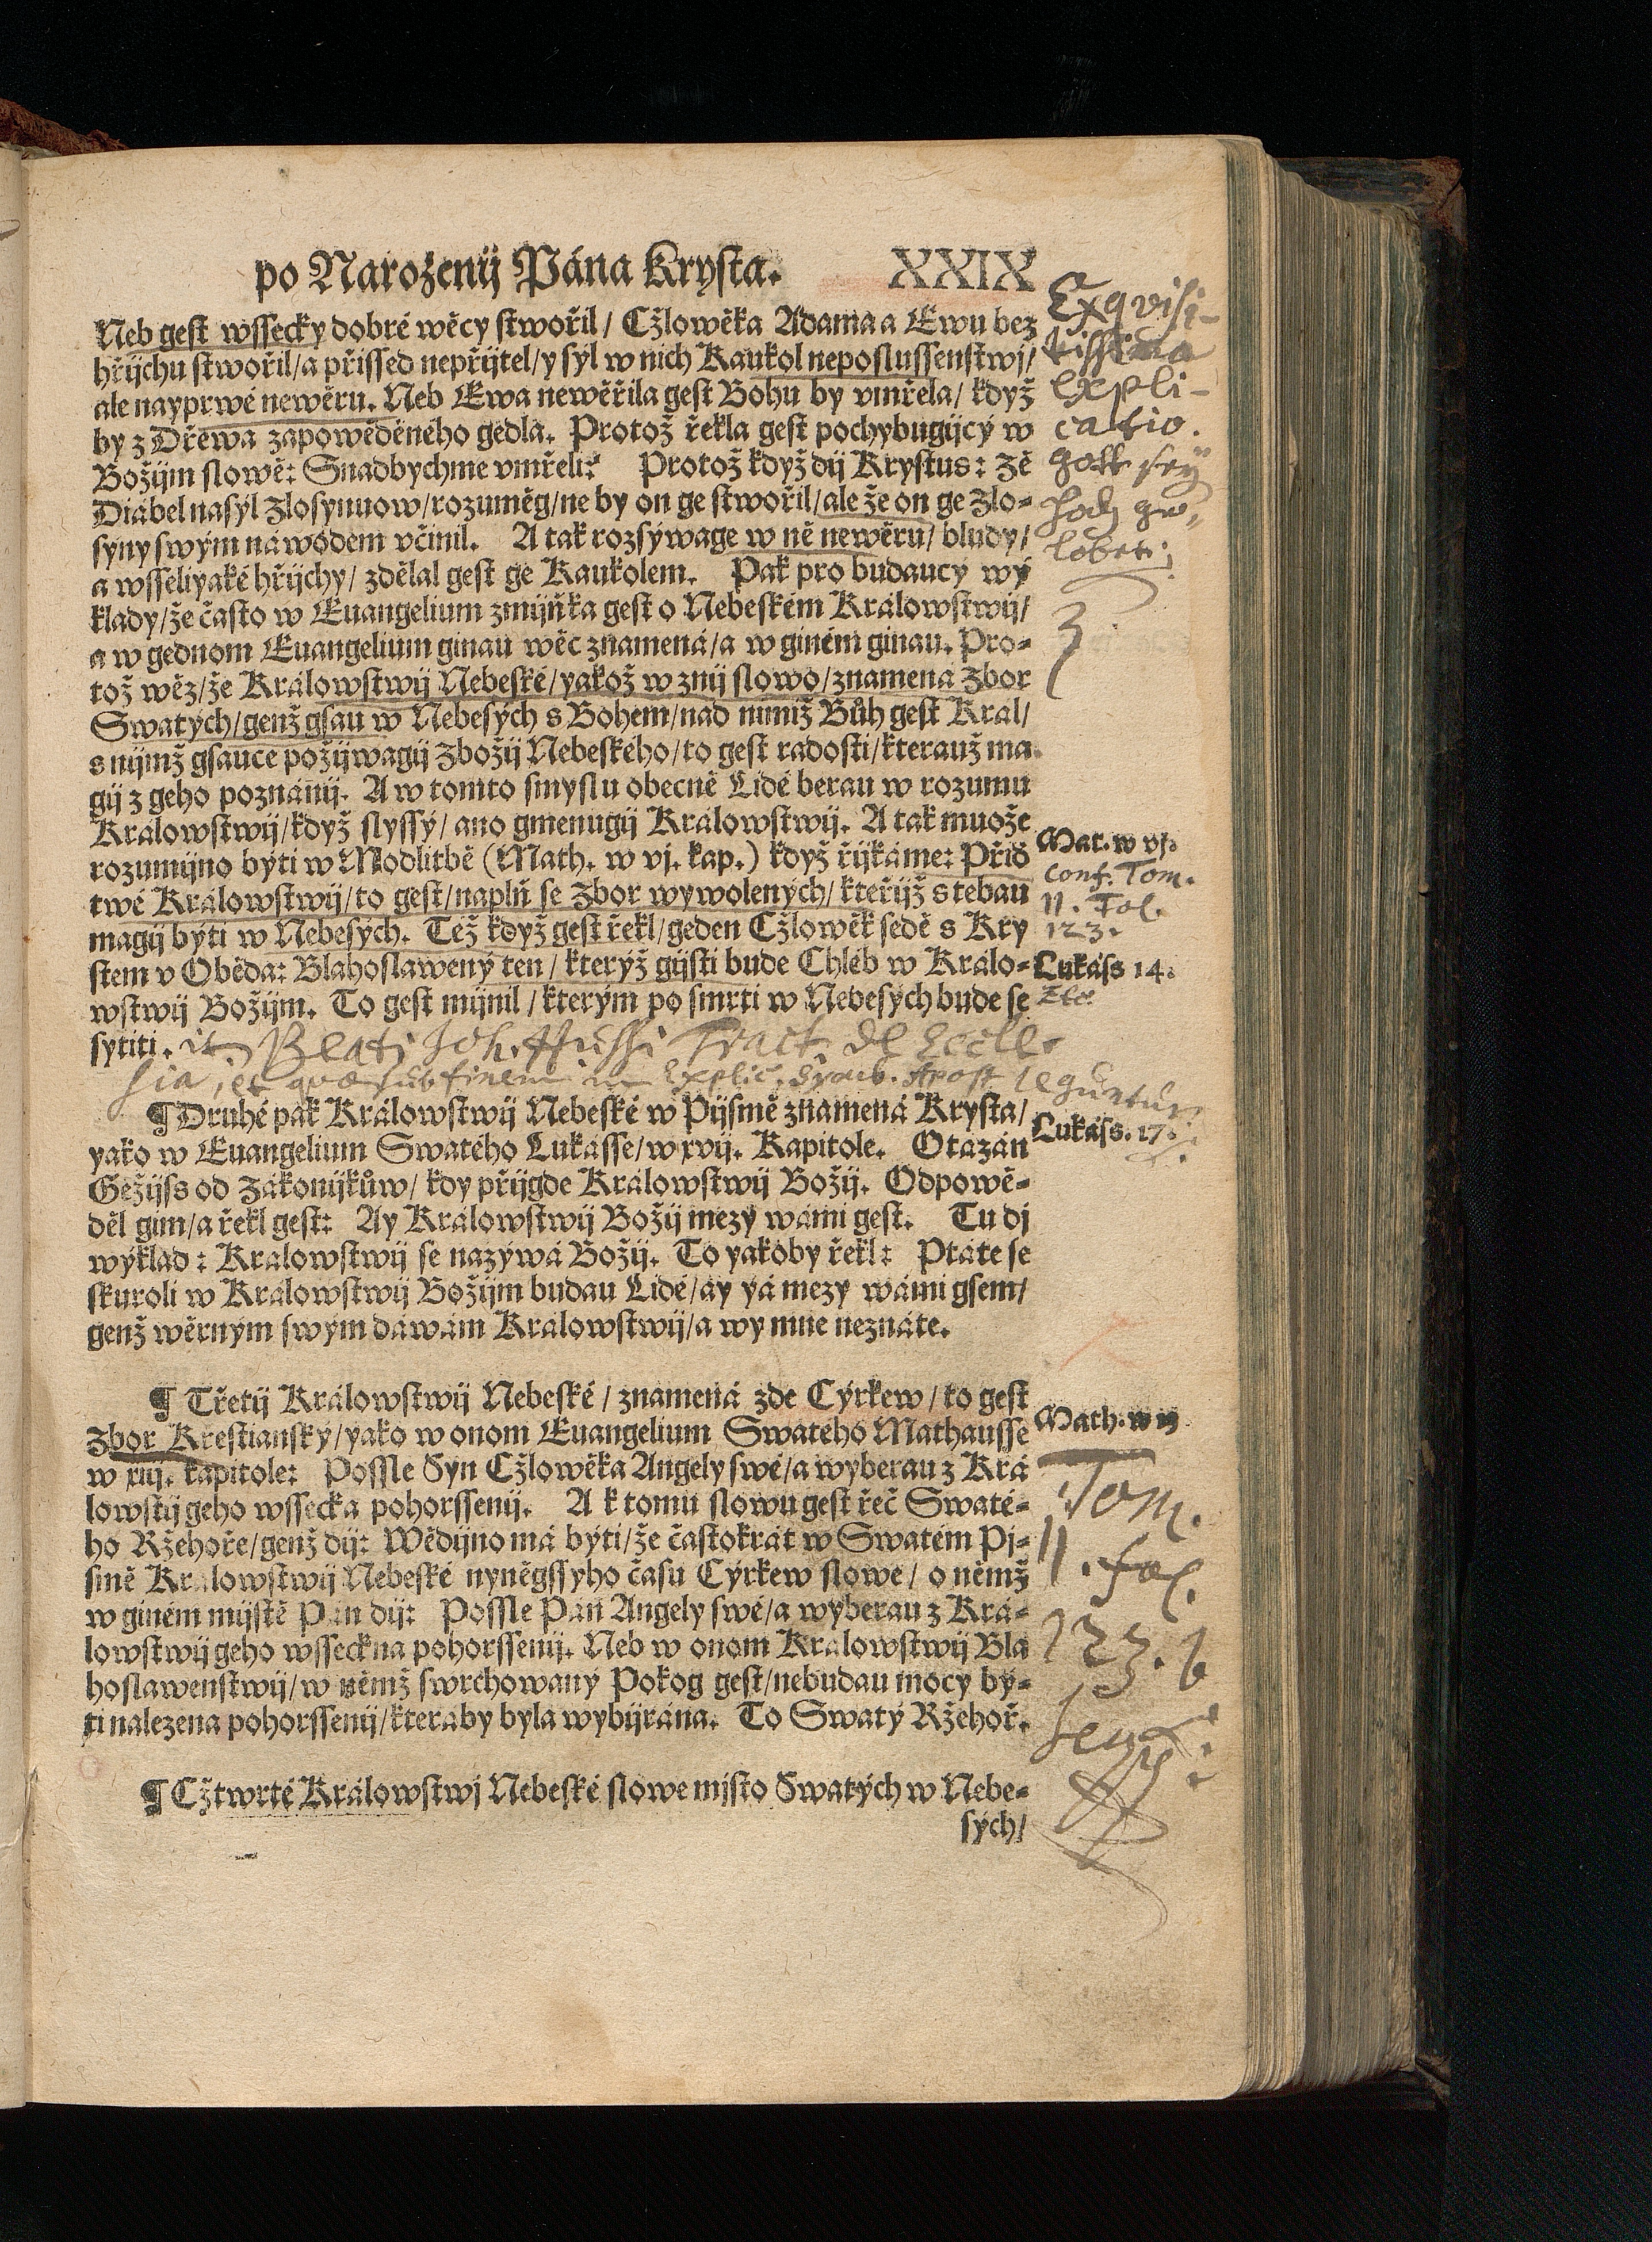 po Narozenij Pána Krysta. XXIX
Neb gest wssecky dobré wěcy stwořil/ Cžlowěka Adama a Ewu bez
hřijchu stwořil/a přissed nepřijtel/y syl w nich Kaukol neposlussenstwj/
ale nayprwé newěru. Neb Ewa newěřila gest Bohu by vmřela/ když
by z Dřewa zapowěděného gedla. Protož řekla gest pochybugijcý w
Božijm slowě: Snadbychme vmřeli? Protož když dij Krystus: Zě
Diábel nasyl Zlosynuow/rozuměg/ne by on ge stwořil/ale že on ge Zlo-
syny swým náwodem včinil. A tak rozsýwage w ně newěru/ bludy/
a wsseliyaké hřijchy/ zdělal gest ge Kaukolem. Pak pro budaucý wý
klady/že často w Euangelium zmijňka gest o Nebeském Králowstwij/
a w gednom Euangelium ginau wěc znamená/a w giném ginau. Pro-
tož wěz/že Králowstwij Nebeské/yakož w znij slowo/znamená Zbor
Swatých/genž gsau w Nebesých s Bohem/nad nimiž Bůh gest Král/
s nijmž gsauce požijwagij Zbožij Nebeského/to gest radosti/kterauž ma
gij z geho poznánij. A w tomto smyslu obecně Lidé berau w rozumu
Králowstwij/když slyssý/ ano gmenugij Králowstwij. A tak muože
rozumijno býti w Modlitbě (Math. w vj. kap.) když řijkáme: Přiď
twé Králowstwij/to gest/naplň se Zbor wywolených/kteřijž s tebau
magij býti w Nebesých. Též když gest řekl/geden Cžlowěk sedě s Kry
stem v Oběda: Blahoslawený ten/ kterýž gijsti bude Chléb w Králo-
wstwij Božijm. To gest mijnil/kterým po smrti w Nebesých bude se
sytiti. it. Beati Joh. Hussi Tract. de Eccle-
sia, et quae sub finem in Explic. Symb. Apost leguntur
¶ Druhé pak Králowstwij Nebeské w Pijsmě znamená Krysta/
yako w Euangelium Swatého Lukásse/w xvij. Kapitole. Otázán
Gežijss od Zákonijkůw/ kdy přijgde Králowstwij Božij. Odpowě-
děl gim/a řekl gest: Ay Králowstwij Božij mezy wámi gest. Tu dj
wýklad: Králowstwij se nazýwá Božij. To yakoby řekl: Ptáte se
skuroli w Králowstwij Božijm budau Lidé/ay yá mezy wámi gsem/
genž wěrným swým dáwám Králowstwij/a wy mne neznáte.
¶ Třetij Králowstwij Nebeské/ znamená zde Cýrkew/to gest
Zbor Krestianský/yako w onom Euangelium Swatého Mathausse
w xiij. kapitole: Possle Syn Cžlowěka Angely swé/a wyberau z Krá
lowstij geho wssecka pohorssenij. A k tomu slowu gest řeč Swaté-
ho Ržehoře/genž dij: Wědijno má býti/že častokrát w Swatém Pj-
smě Králowstwij Nebeské nyněgssyho času Cýrkew slowe/ o němž
w giném mijstě Pán dij: Possle Pán Angely swé/a wyberau z Krá-
lowstwij geho wsseckna pohorssenij. Neb w onom Králowstwij Bla
hoslawenstwij/w němž swrchowaný Pokog gest/nebudau mocy by-
ti nalezena pohorssenij/kteráby byla wybijrána. To Swatý Ržehoř.
¶ Cžtwrté Králowstwj Nebeské slowe mjsto Swatých w Nebe-
sých/
Exqvisi-
tissima
expli-
catio.
gott sey
hoch ge-
lobet.
Mat. w vj.
conf. Tom.
II. Fol.
123.
Lukáss 14.
Lukáss. 17.
Math. w 13
Tom.
II. fol.
123. b